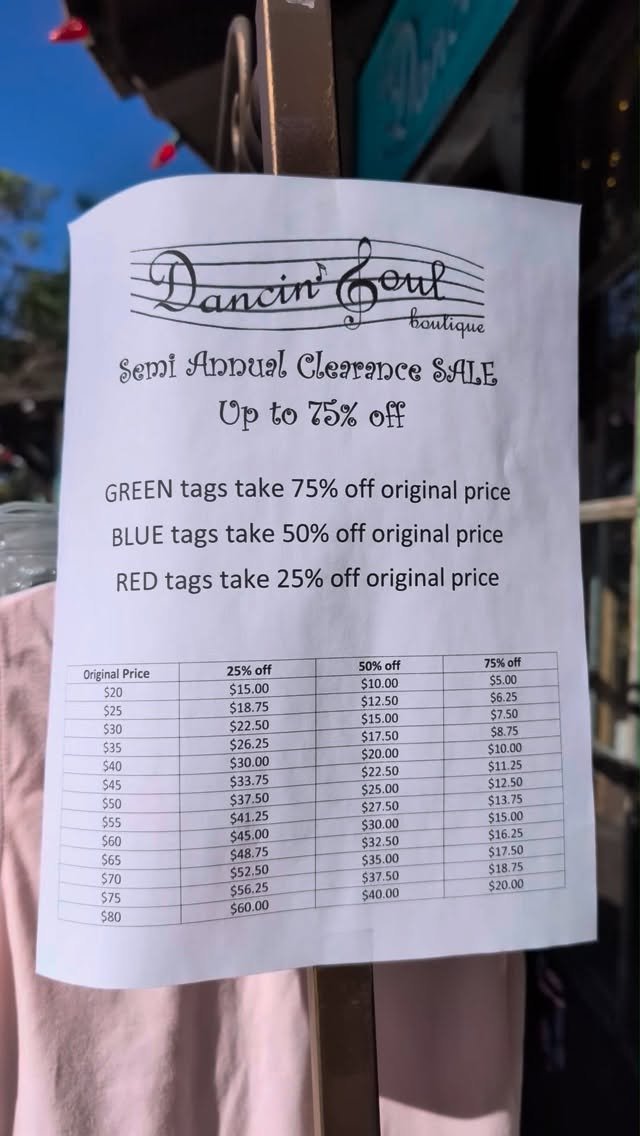 Dancin' Soul
boutique
Semi Annual Clearance SALE
Up to 75% off
GREEN tags take 75% off original price
BLUE tags take 50% off original price
RED tags take 25% off original price
Original Price 25% off 50% off 75% off
$20 $15.00 $10.00 $5.00
$25 $18.75 $12.50 $6.25
$30 $22.50 $15.00 $7.50
$35 $26.25 $17.50 $8.75
$40 $30.00 $20.00 $10.00
$45 $33.75 $22.50 $11.25
$50 $37.50 $25.00 $12.50
$55 $41.25 $27.50 $13.75
$60 $45.00 $30.00 $15.00
$65 $48.75 $32.50 $16.25
$70 $52.50 $35.00 $17.50
$75 $56.25 $37.50 $18.75
$80 $60.00 $40.00 $20.00